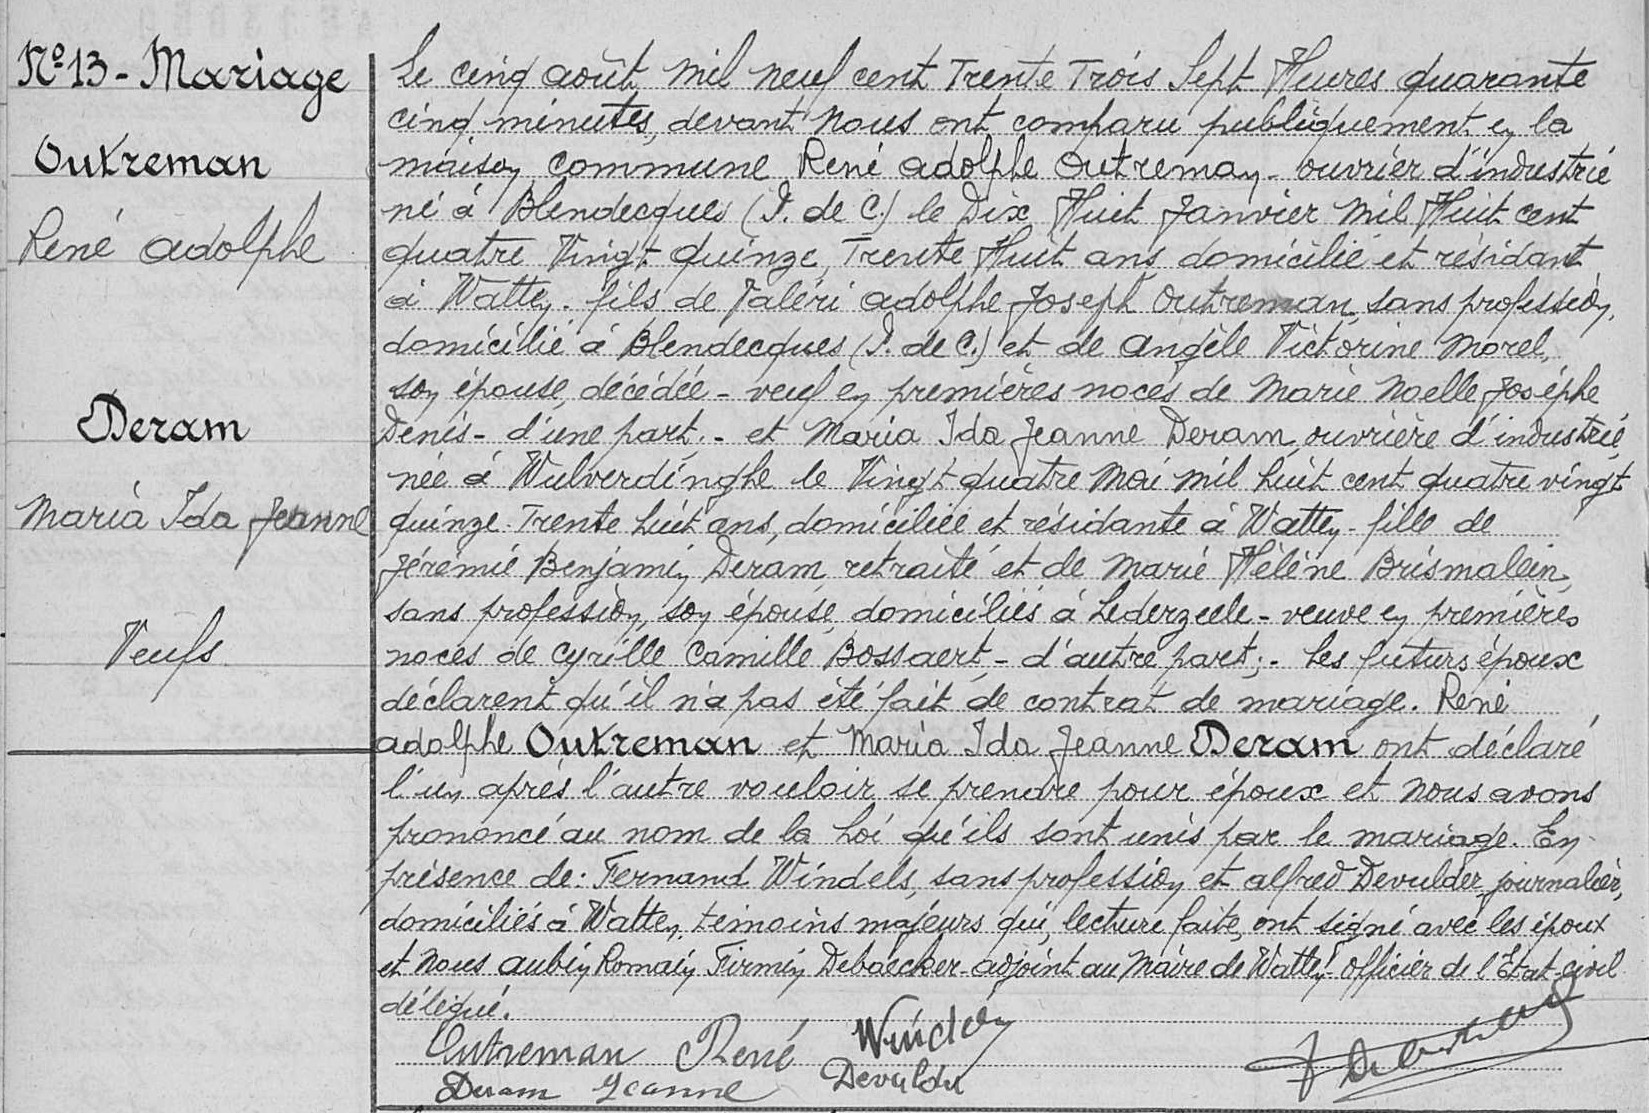 Nº 13 - Mariage
Outreman
René Adolphe
Deram
Maria Ida Jeanne
Veufs
Le cinq août mil neuf cent Trente Trois Sept Heures quarante
cinq minutes, devant Nous ont comparu publiquement en la
maison commune René Adolphe Outreman - ouvrier d'industrie
né à Blendecques (P. de C.) le Dix Huit Janvier Mil Huit cent
quatre Vingt quinze, Trente Huit ans domicilié et résidant
à Watten. fils de Valéri Adolphe Joseph Outreman, sans profession,
domicilié à Blendecques (P. de C.) et de Angèle Victorine Morel,
son épouse, décédée - veuf en premières noces de Marie Noelle Josèphe
Denis - d'une part. - et Maria Ida Jeanne Deram ouvrière d'industrie,
née à Wulverdinghe le Vingt quatre Mai mil huit cent quatre vingt
quinze. Trente huit ans, domiciliée et résidante à Watten - fille de
Jérémie Benjamin Deram retraité et de Marie Hélène Brismalein,
sans profession, son épouse, domiciliés à Lederzeele - veuve en premières
noces de Cyrille Camille Bossaert, - d'autre part; - Les futurs époux
déclarent qu'il n'a pas été fait de contrat de mariage. René
Adolphe Outreman et Maria Ida Jeanne Deram ont déclaré
l'un après l'autre vouloir se prendre pour époux et Nous avons
prononcé au nom de la Loi qu'ils sont unis par le mariage. En
présence de: Fernand Windels, sans profession et Alfred Devulder, journalier,
domiciliés à Watten, témoins majeurs qui, lecture faite, ont signé avec les époux
et Nous Aubin Romain Firmin Debaecker - adjoint au Maire de Watten - officier de l'Etat-civil
délégué.
Outreman René
Deram Jeanne
Devulder